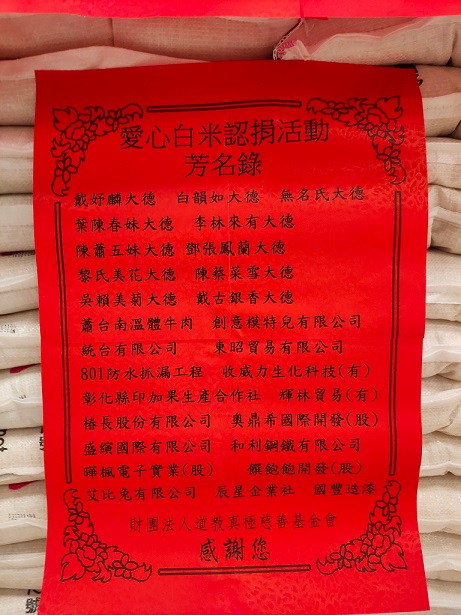 愛心白米認捐活動
芳名錄
戴妤麟大德 白韻如大德 無名氏大德
葉陳春妹大德 李林來有大德
陳蕭五妹大德 鄧張鳳蘭大德
黎氏美花大德 陳蔡菜雪大德
吳賴美菊大德 戴古銀香大德
蕭台南溫體牛肉 創意模特兒有限公司
統台有限公司 東昭貿易有限公司
801防水抓漏工程 收威力生化科技(有)
彰化縣印加果生產合作社 輝林貿易(有)
椿長股份有限公司 奧鼎希國際開發(股)
盛繽國際有限公司 和利鋼鐵有限公司
暐楓電子實業(股) 饌飽飽開發(股)
艾比兔有限公司 辰星企業社 國豐造漆
財團法人道教真極慈善基金會
感謝您